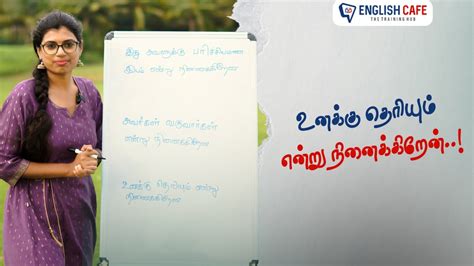 ENGLISH CAFE
THE TRAINING HUB
இது அவளுக்கு பரிச்சயமான
இடம் என்று நினைக்கிறேன்
அவர்கள் வருவார்கள்
என்று நினைக்கிறேன்
உனக்கு தெரியும் என்று
நினைக்கிறேன்
உனக்கு தெரியும்
என்று நினைக்கிறேன்..!